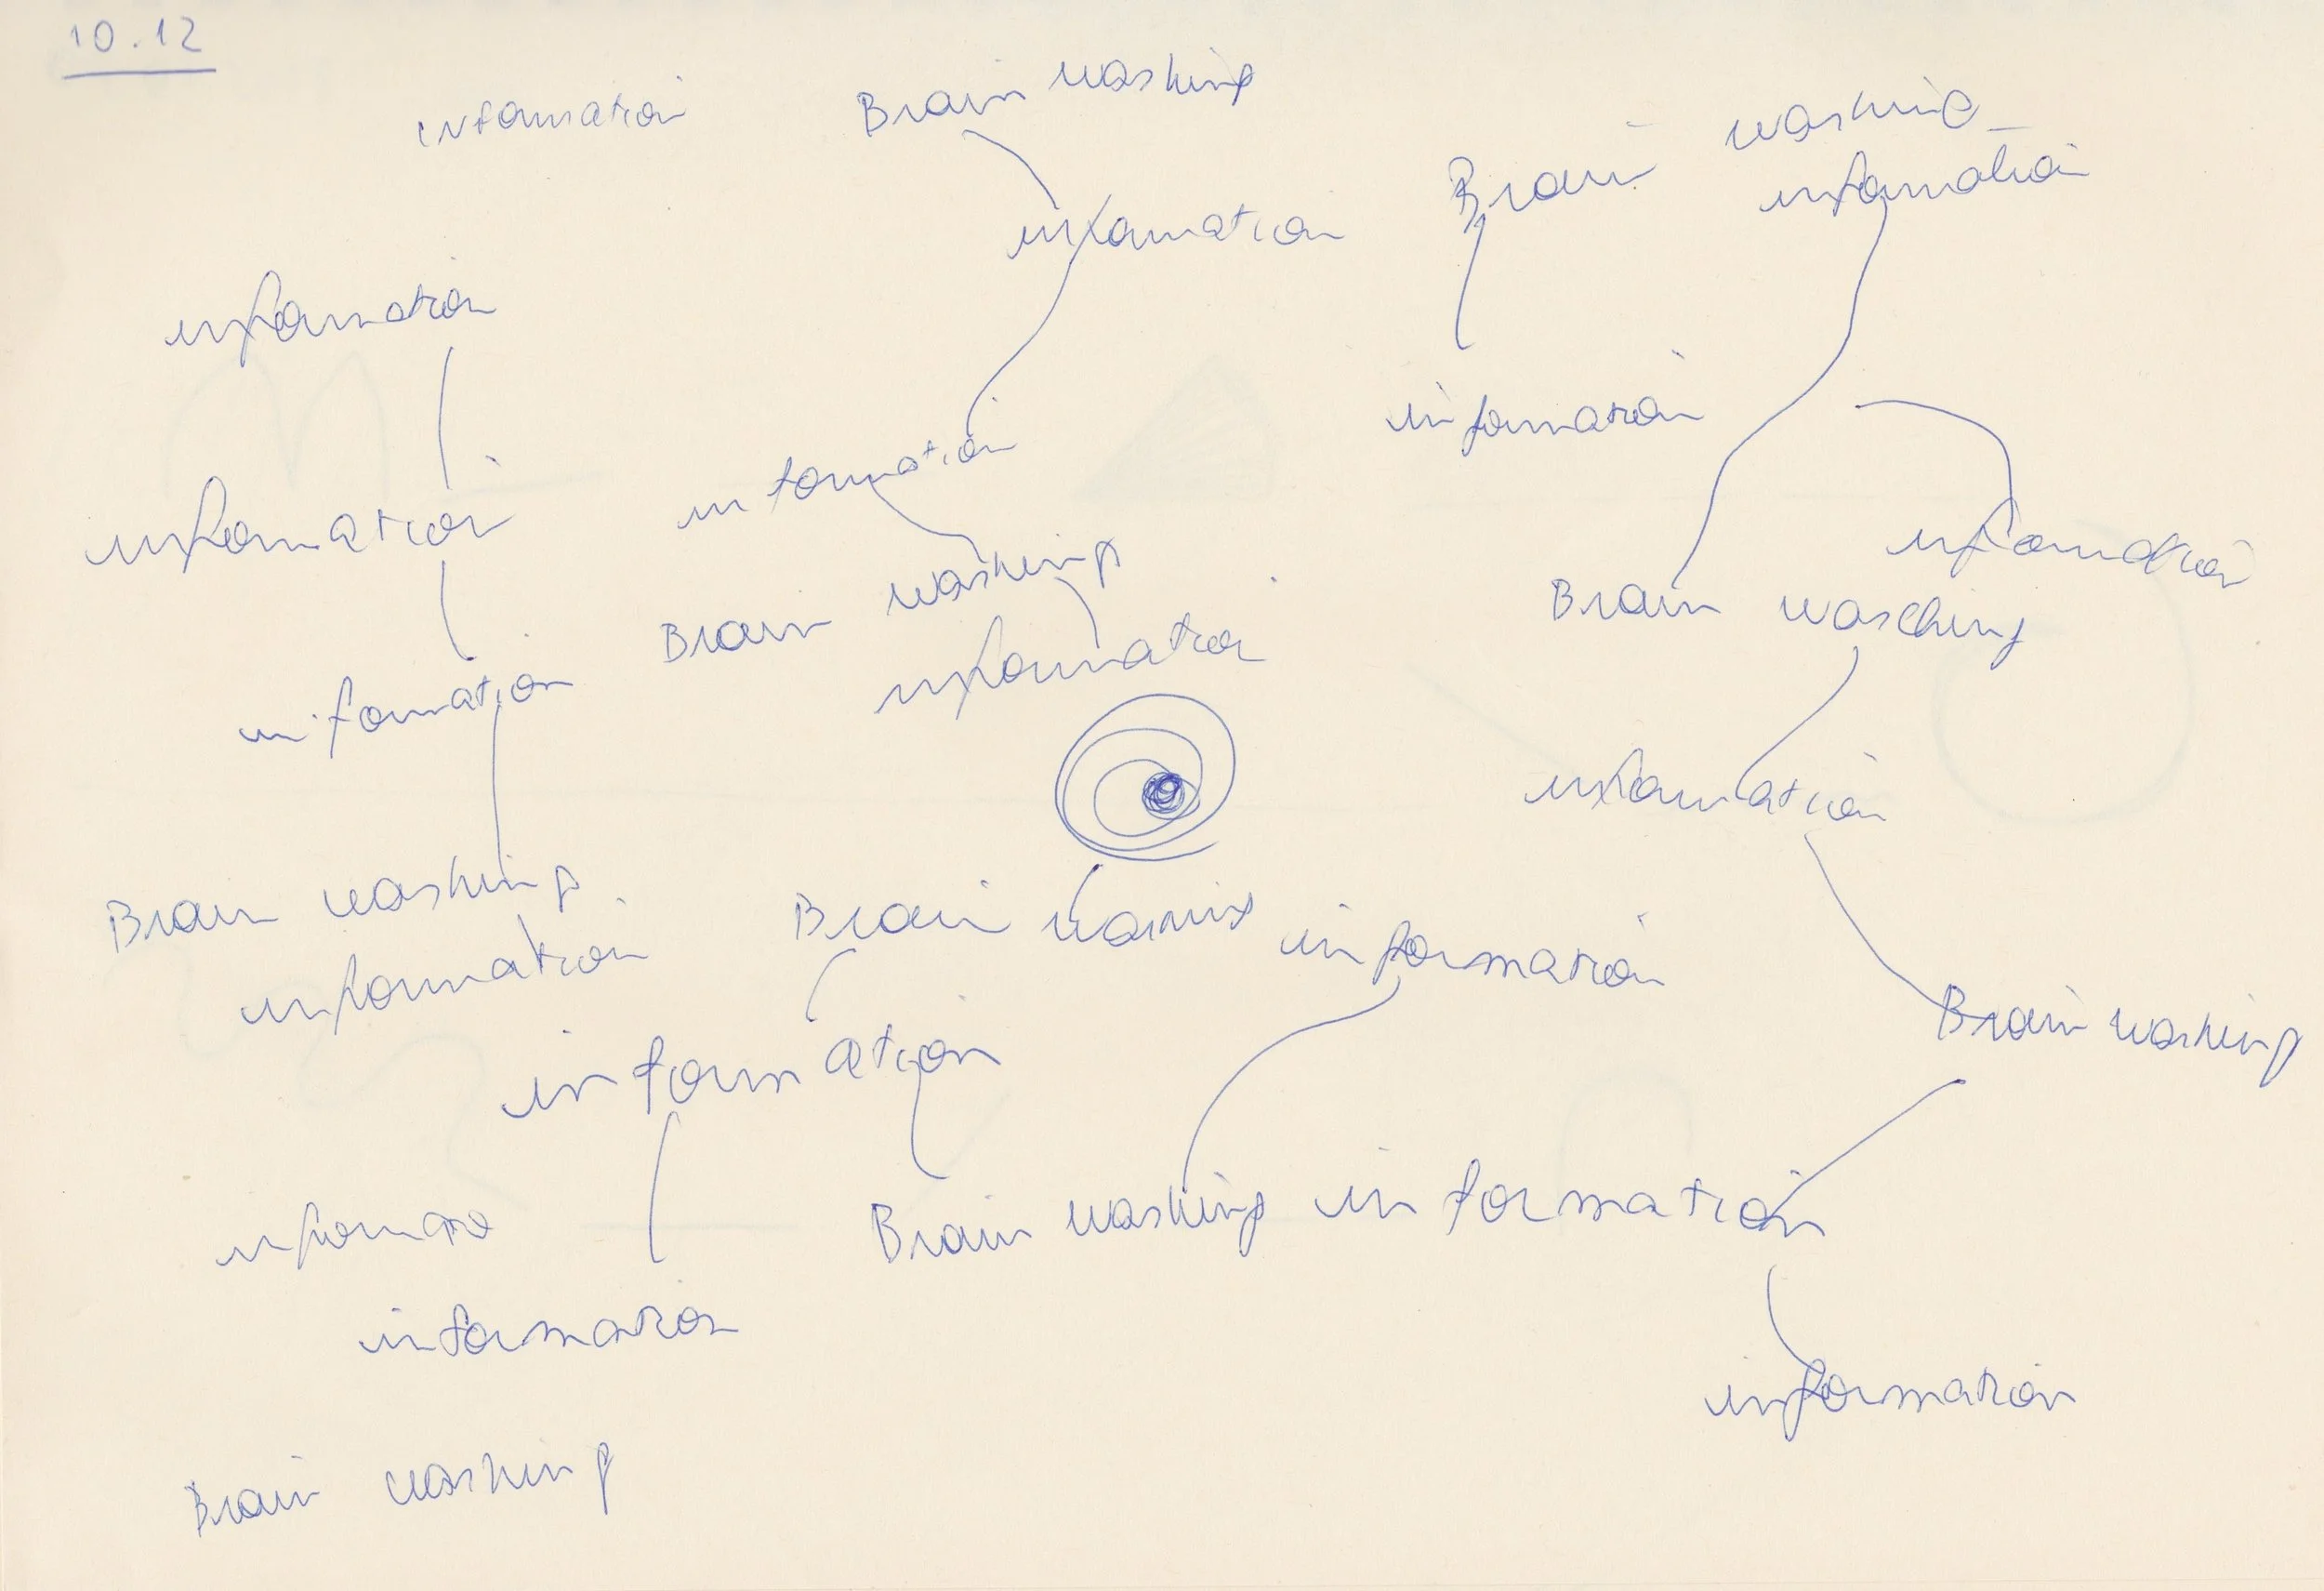 10.12
information
Brain washing
Brain washing
information
information
information
information
information
information
information
Brain wasching
Brain washing
information
information
information
Brain washing
Brain
information
information
Brain washing
information
Brain washing
information
information
information
Brain washing